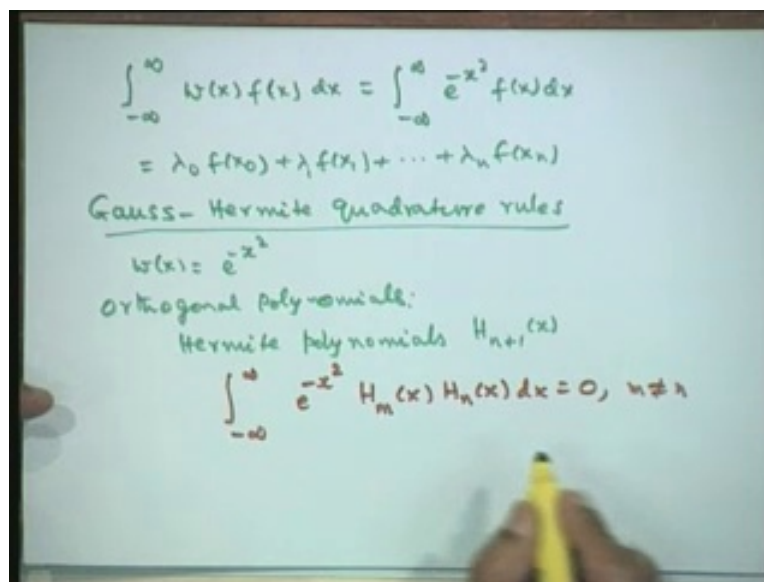 ∫_{-∞}^{∞} w(x) f(x) dx = ∫_{-∞}^{∞} e^{-x²} f(x) dx
= λ₀ f(x₀) + λ₁ f(x₁) + ··· + λₙ f(xₙ)
Gauss- Hermite quadrature rules
w(x) = e^{-x²}
Orthogonal polynomials:
Hermite polynomials H_{n+1}(x)
∫_{-∞}^{∞} e^{-x²} H_m(x) H_n(x) dx = 0, m ≠ n